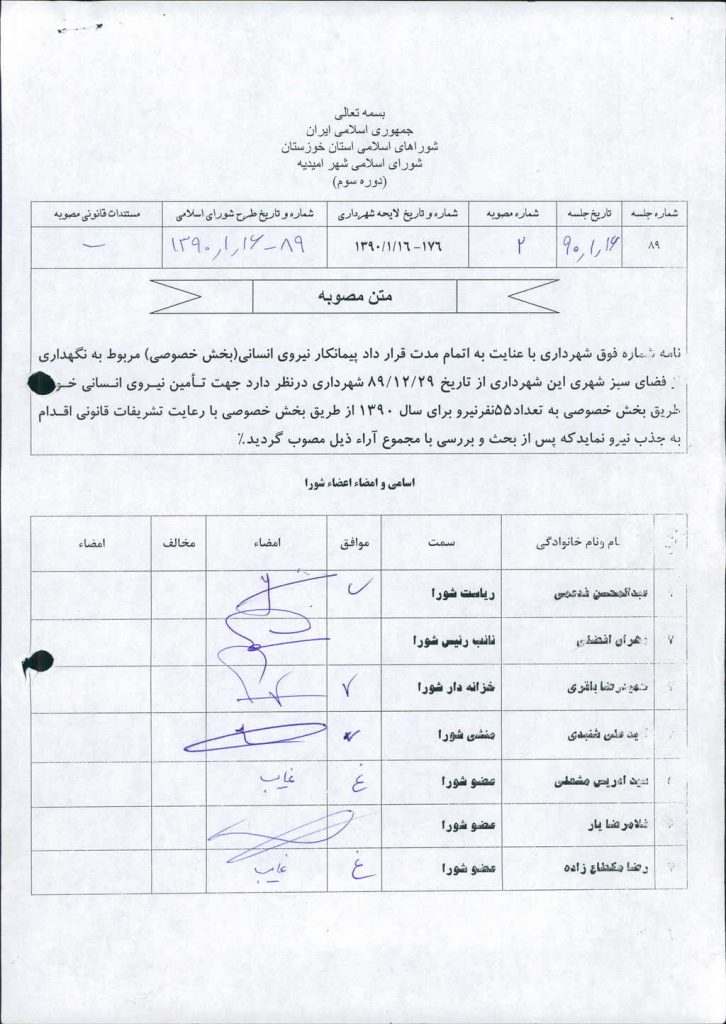 بسمه تعالی
جمهوری اسلامی ایران
شوراهای اسلامی استان خوزستان
شورای اسلامی شهر امیدیه
(دوره سوم)
شماره جلسه تاریخ جلسه شماره مصوبه شماره و تاریخ لایحه شهرداری شماره و تاریخ طرح شورای اسلامی مستندات قانونی مصوبه
۸۹ ۹۰,۱,۱۶ ۲ ۱۷۶-۱۳۹۰/۱/۱۶ ۸۹-۱۳۹۰,۱,۱۶ –
متن مصوبه
نامه شماره فوق شهرداری با عنایت به اتمام مدت قرار داد پیمانکار نیروی انسانی(بخش خصوصی) مربوط به نگهداری
از فضای سبز شهری این شهرداری از تاریخ ۸۹/۱۲/۲۹ شهرداری درنظر دارد جهت تأمین نیروی انسانی
طریق بخش خصوصی به تعداد۵۵نفرنیرو برای سال ۱۳۹۰ از طریق بخش خصوصی با رعایت تشریفات قانونی اقدام
به جذب نیرو نمایدکه پس از بحث و بررسی با مجموع آراء ذیل مصوب گردید.٪
اسامی و امضاء اعضاء شورا
نام ونام خانوادگی سمت موافق امضاء مخالف امضاء
عبدالمحسن ریاست شورا ✓
نائب رئیس شورا
حمیدرضا باقری خزانه دار شورا ✓
منشی شورا ✓
سید ادریس مشعلی عضو شورا غ غایب
غلامرضا یار عضو شورا
رضا عضو شورا غ غایب